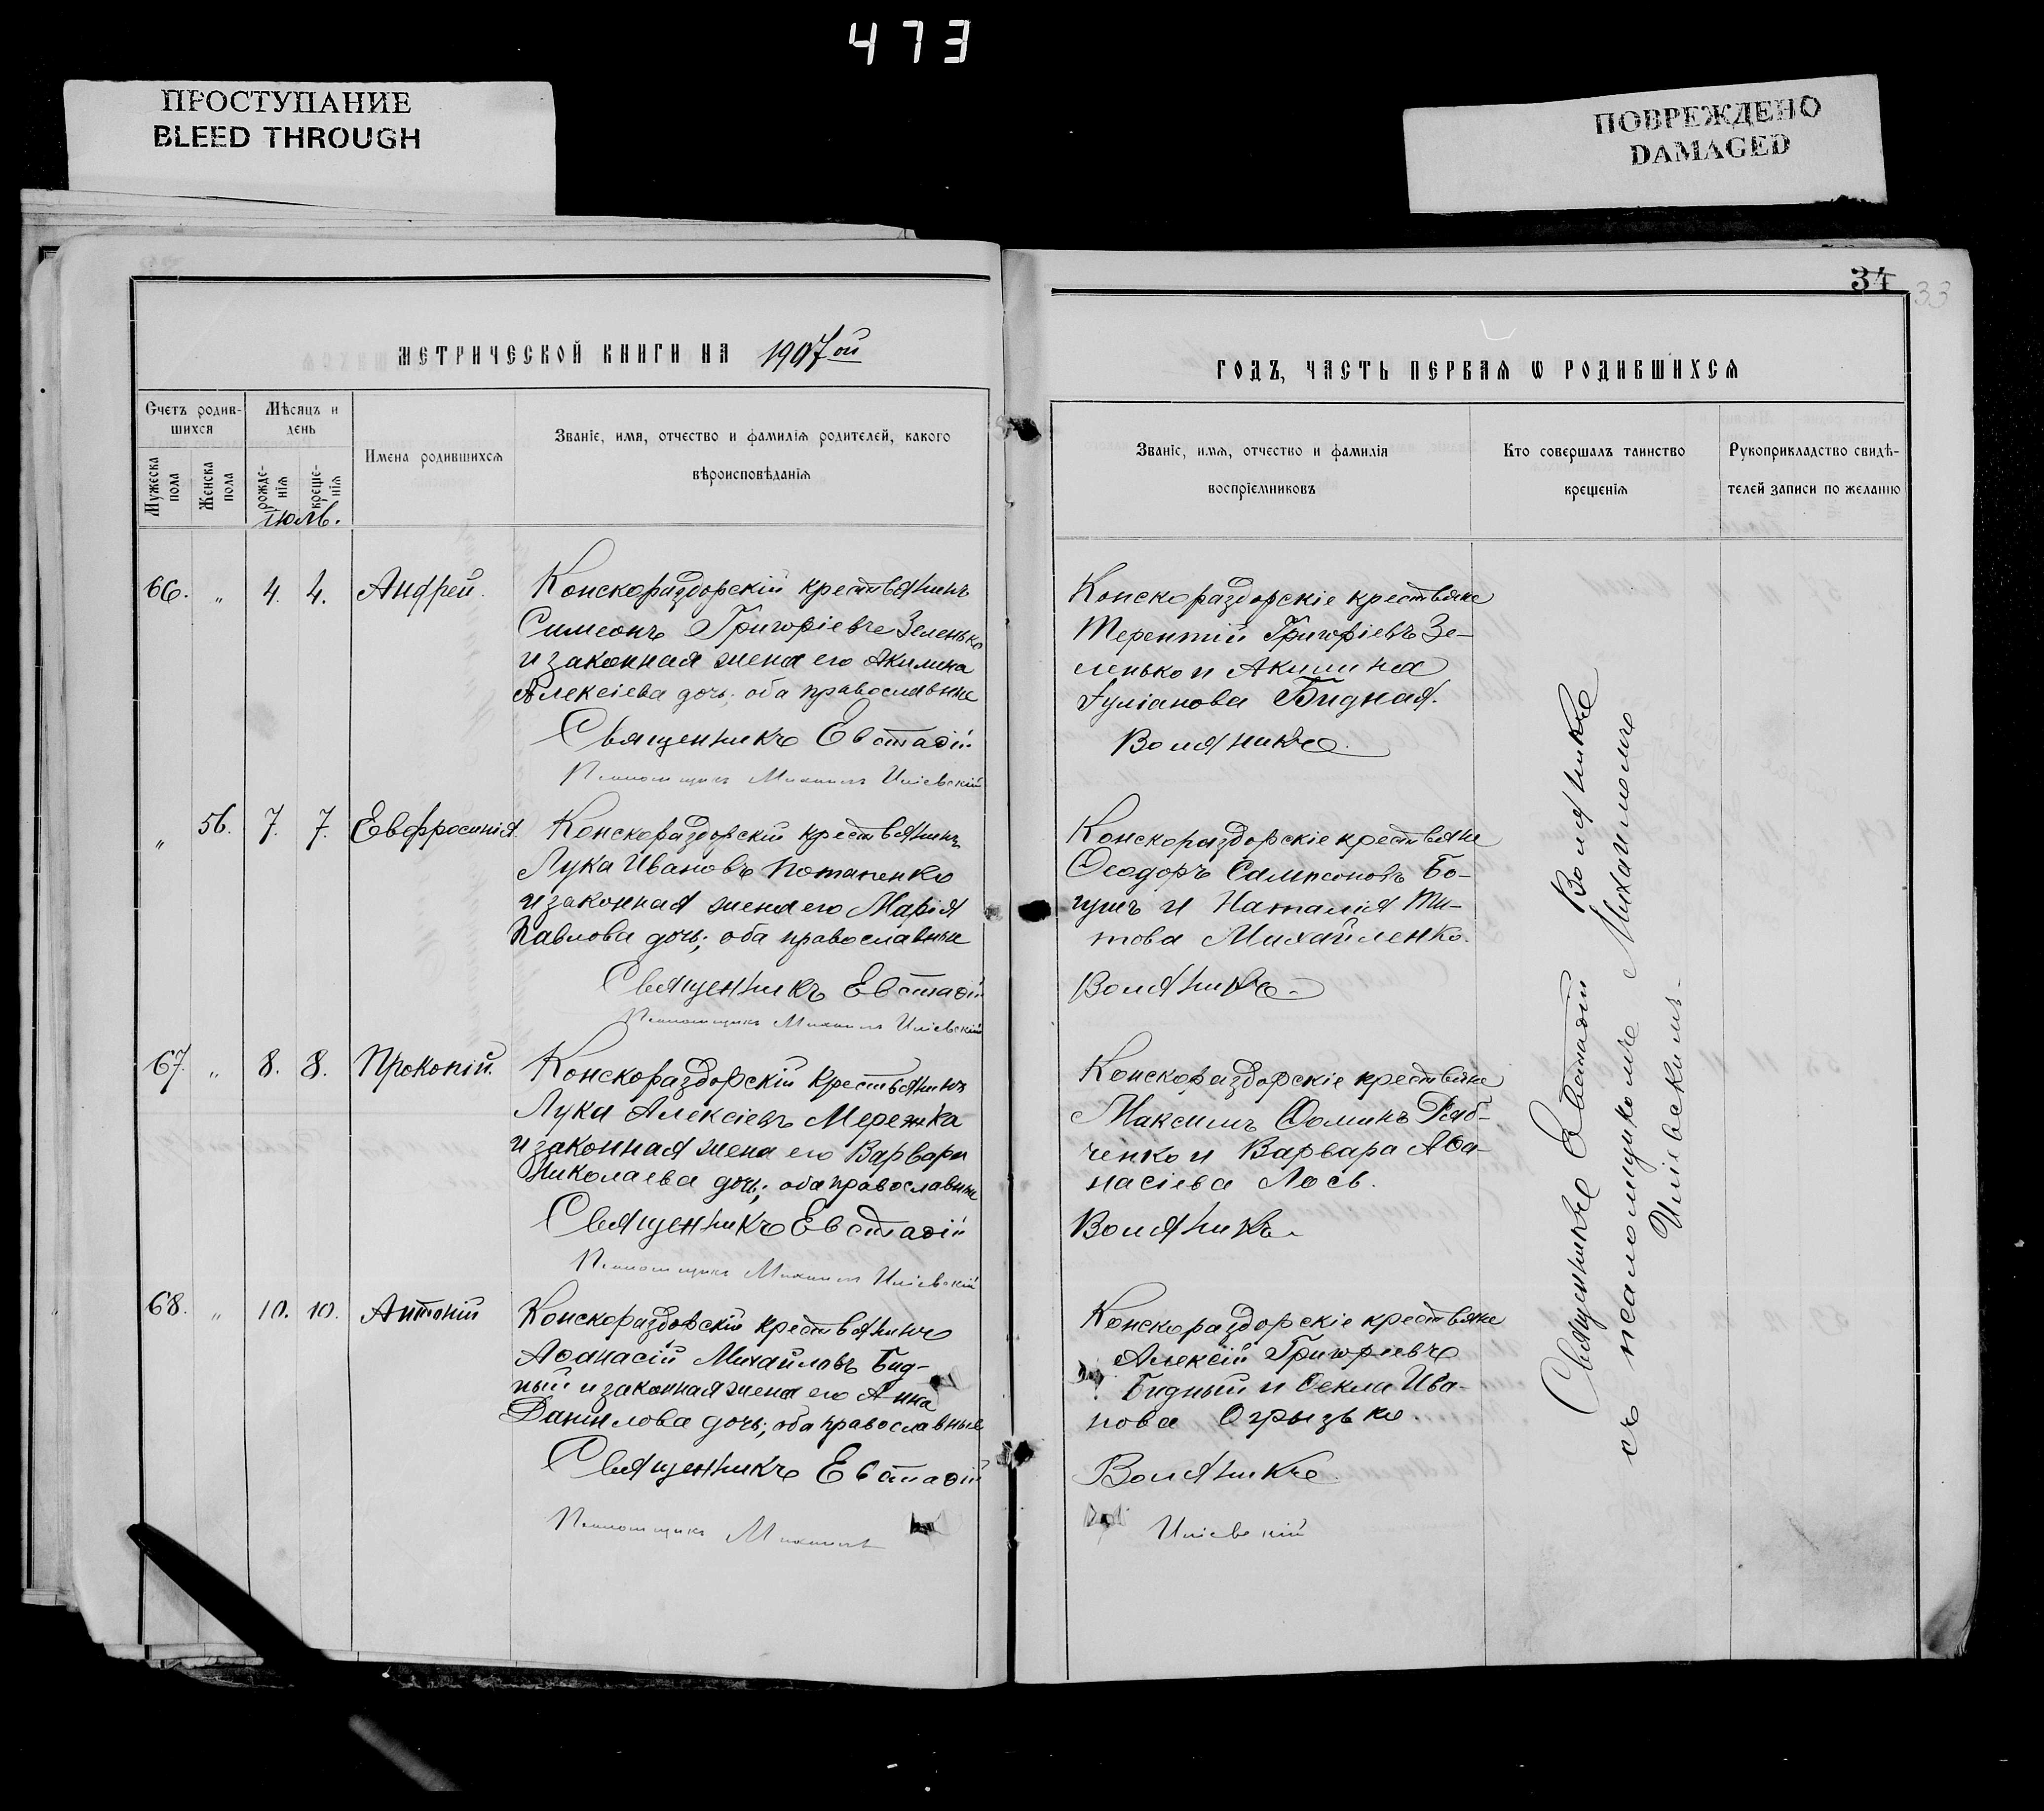 473
ПРОСТУПАНИЕ
BLEED THROUGH
ПОВРЕЖДЕНО
DAMAGED
34
33
МЕТРИЧЕСКОЙ КНИГИ НА 1907ой
ГОДЪ, ЧАСТЬ ПЕРВАЯ Ѡ РОДИВШИХСЯ
Счетъ родив-
шихся
Мужеска
пола
Женска
пола
Мѣсяцъ и
день
рожде-
нія
креще-
нія
Имена родившихся
Званіе, имя, отчество и фамилія родителей, какого
вѣроисповѣданія
Званіе, имя, отчество и фамилія
воспріемниковъ
Кто совершалъ таинство
крещенія
Рукоприкладство свидѣ-
телей записи по желанію
Іюль.
66. „ 4. 4. Андрей.
Конскораздорскій крестьянинъ
Симеонъ Григоріевъ Зеленько
и законная жена его Акилина
Алексіева дочь; оба православные
Священникъ Евстафій
Псаломщикъ Михаилъ Иліевскій
Конскораздорскіе крестьяне
Терентій Григоріевъ Зе-
ленько и Акилина
Іуліанова Бидная.
Воляникъ.
„ 56. 7. 7. Евфросинія.
Конскораздорскій крестьянинъ
Лука Ивановъ Потапенко
и законная жена его Марія
Павлова дочь; оба православные
Священникъ Евстафій
Псаломщикъ Михаилъ Иліевскій
Конскораздорскіе крестьяне
Ѳеодоръ Сампсоновъ Бо-
гушъ и Наталія Ти-
това Михайленко.
Воляникъ.
67. „ 8. 8. Прокопій.
Конскораздорскій крестьянинъ
Лука Алексіевъ Мережка
и законная жена его Варвара
Николаева дочь; оба православные
Священникъ Евстафій
Псаломщикъ Михаилъ Иліевскій
Конскораздорскіе крестьяне
Максимъ Ѳоминъ Ряб-
ченко и Варвара Аѳа-
насіева Лось.
Воляникъ.
68. „ 10. 10. Антоній
Конскораздорскій крестьянинъ
Аѳанасій Михайловъ Бид-
ный и законная жена его Анна
Даніилова дочь; оба православные
Священникъ Евстафій
Псаломщикъ Михаилъ
Конскораздорскіе крестьяне
Алексій Григоріевъ
Бидный и Ѳекла Ива-
нова Огрызько.
Воляникъ.
Иліевскій
Священникъ Евстафій Воляникъ
съ псаломщикомъ Михаиломъ
Иліевскимъ.